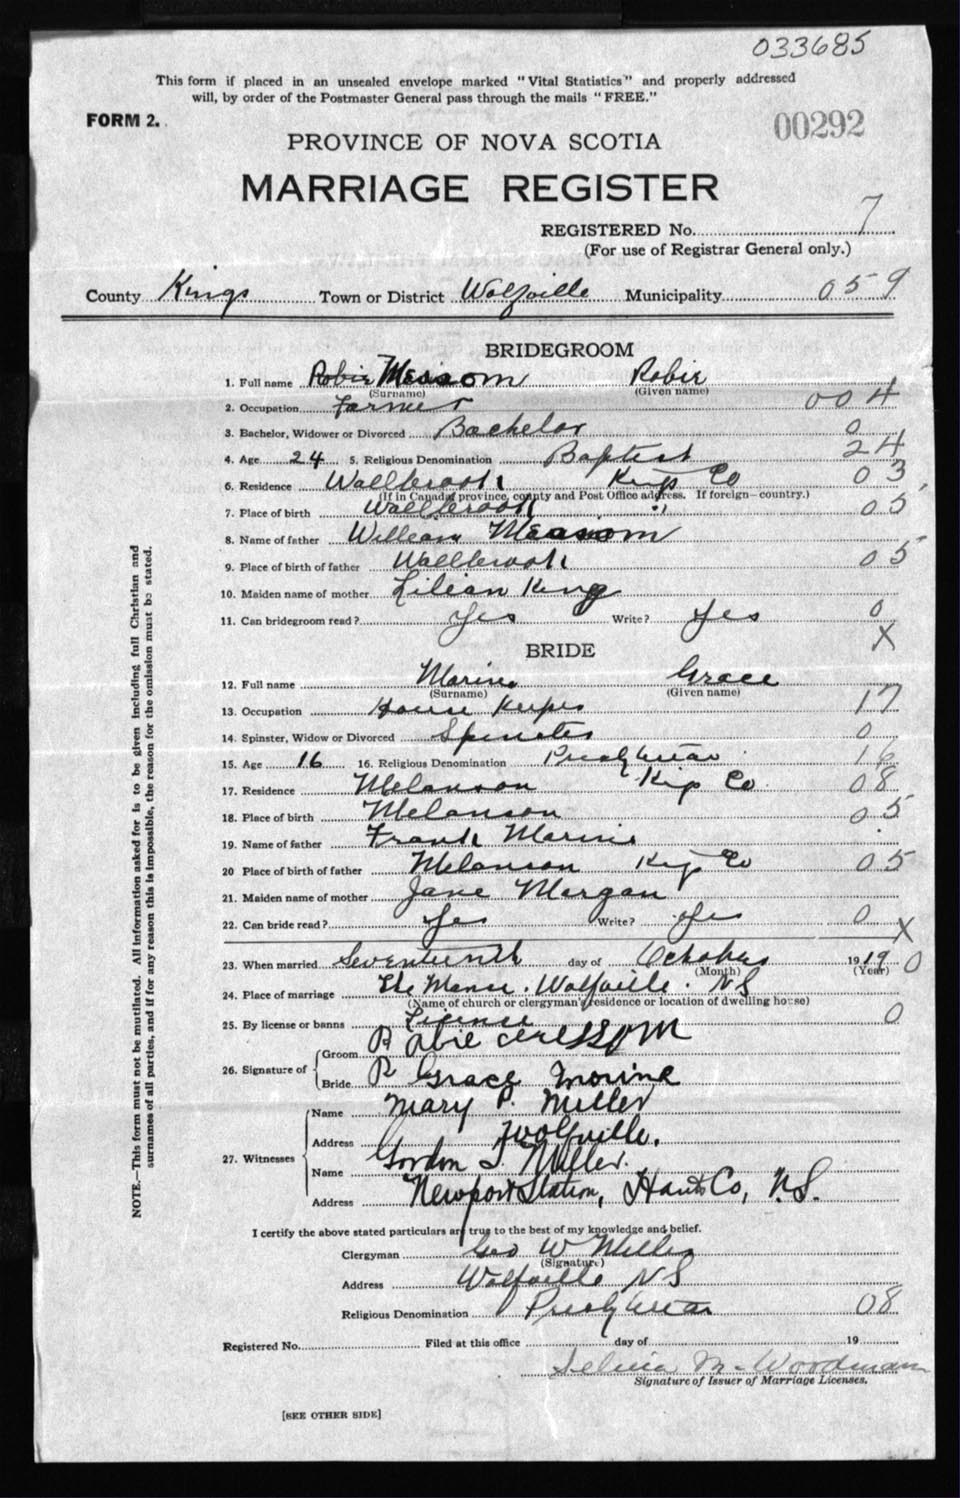 033685
This form if placed in an unsealed envelope marked "Vital Statistics" and properly addressed
will, by order of the Postmaster General pass through the mails "FREE."
FORM 2.
00292
PROVINCE OF NOVA SCOTIA
MARRIAGE REGISTER
REGISTERED No. 7
(For use of Registrar General only.)
County Kings Town or District Wolfville Municipality 059
BRIDEGROOM
1. Full name Robie Messom Robie
(Surname) (Given name)
2. Occupation Farmer 004
3. Bachelor, Widower or Divorced Bachelor 0
4. Age 24 5. Religious Denomination Baptist 24
6. Residence Wallbrook Kings Co 03
(If in Canada province, county and Post Office address. If foreign-country.)
7. Place of birth Wallbrook 05
8. Name of father William Messom
9. Place of birth of father Wallbrook 05
10. Maiden name of mother Lilian King
11. Can bridegroom read? Yes Write? Yes 0
X
BRIDE
12. Full name Marine Grace
(Surname) (Given name)
13. Occupation House Keeper 17
14. Spinster, Widow or Divorced Spinster 0
15. Age 16 16. Religious Denomination Presbyterian 16
17. Residence Melanson Kings Co 08
18. Place of birth Melanson 05
19. Name of father Frank Marine
20 Place of birth of father Melanson Kings Co 05
21. Maiden name of mother Jane Morgan
22. Can bride read? Yes Write? Yes 0 X
23. When married Seventeenth day of October 1919 0
(Month) (Year)
24. Place of marriage The Manse. Wolfville. NS
(Name of church or clergyman's residence or location of dwelling house)
25. By license or banns License 0
26. Signature of Groom Robie Messom
Bride R Grace Morine
27. Witnesses Name Mary P. Miller
Address Wolfville.
Name Gordon S. Miller.
Address Newport Station, Hants Co, N.S.
I certify the above stated particulars are true to the best of my knowledge and belief.
Clergyman Geo W Miller
(Signature)
Address Wolfville NS
Religious Denomination Presbyterian 08
Registered No. Filed at this office day of 19
Woodman
Signature of Issuer of Marriage Licenses.
[SEE OTHER SIDE]
NOTE.—This form must not be mutilated. All information asked for is to be given including full Christian and
surnames of all parties, and if for any reason this is impossible, the reason for the omission must be stated.